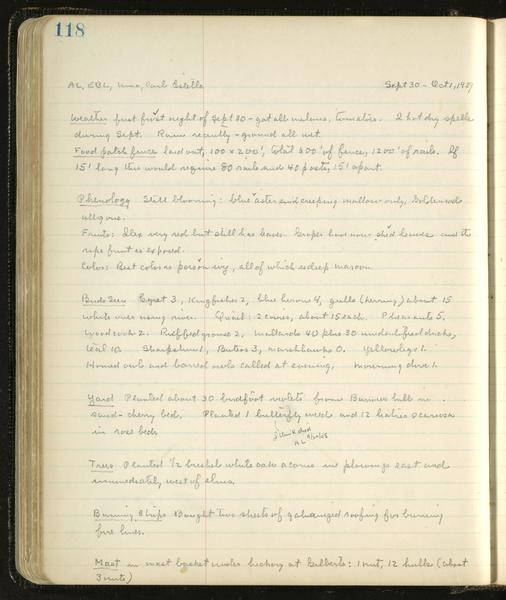 118
AL, EBL, Nina, Carl Estella Sept 30 - Oct 1, 1939
Weather first frost night of Sept 30 - got all melons, tomatoes. 2 hot dry spells
during Sept. Rains recently - ground all wet.
Food patch fence laid out, 100 x 200', total 600' of fence, 1200' of rails. If
15' long this would require 80 rails and 40 posts, 15' apart.
Phenology Still blooming: blue aster and creeping mallow only. Goldenrods
all gone.
Fruits: Ilex very red but still has leaves. Grapes have now shed leaves and the
ripe fruit is exposed.
Color: Best color is poison ivy, all of which is deep maroon.
Birds Seen Egret 3, Kingfisher 2, blue heron 4, gulls (herring) about 15
white over river. Quail: 2 covies, about 15 each. Pheasants 5.
Woodcock 2. Ruffed grouse 2. Mallards 40 plus 30 unidentified ducks,
teal 10. Sharpshin 1, Buteos 3, marshhawks 0. Yellowlegs 1.
Horned owls and barred owls called at evening. Mourning dove 1.
Yard Planted about 30 birdfoot violets from Burines hill in
sand-cherry beds. Planted 1 butterfly weed and 12 liatris
in rose beds
Trees Planted 1/2 bushel white oak acorns in plowings east and
immediately west of elms.
Burning Strips Bought two sheets of galvanized roofing for burning
fire lines.
Mast in mast basket under hickory at Gilberts: 1 nut, 12 hulls (about
3 nuts)